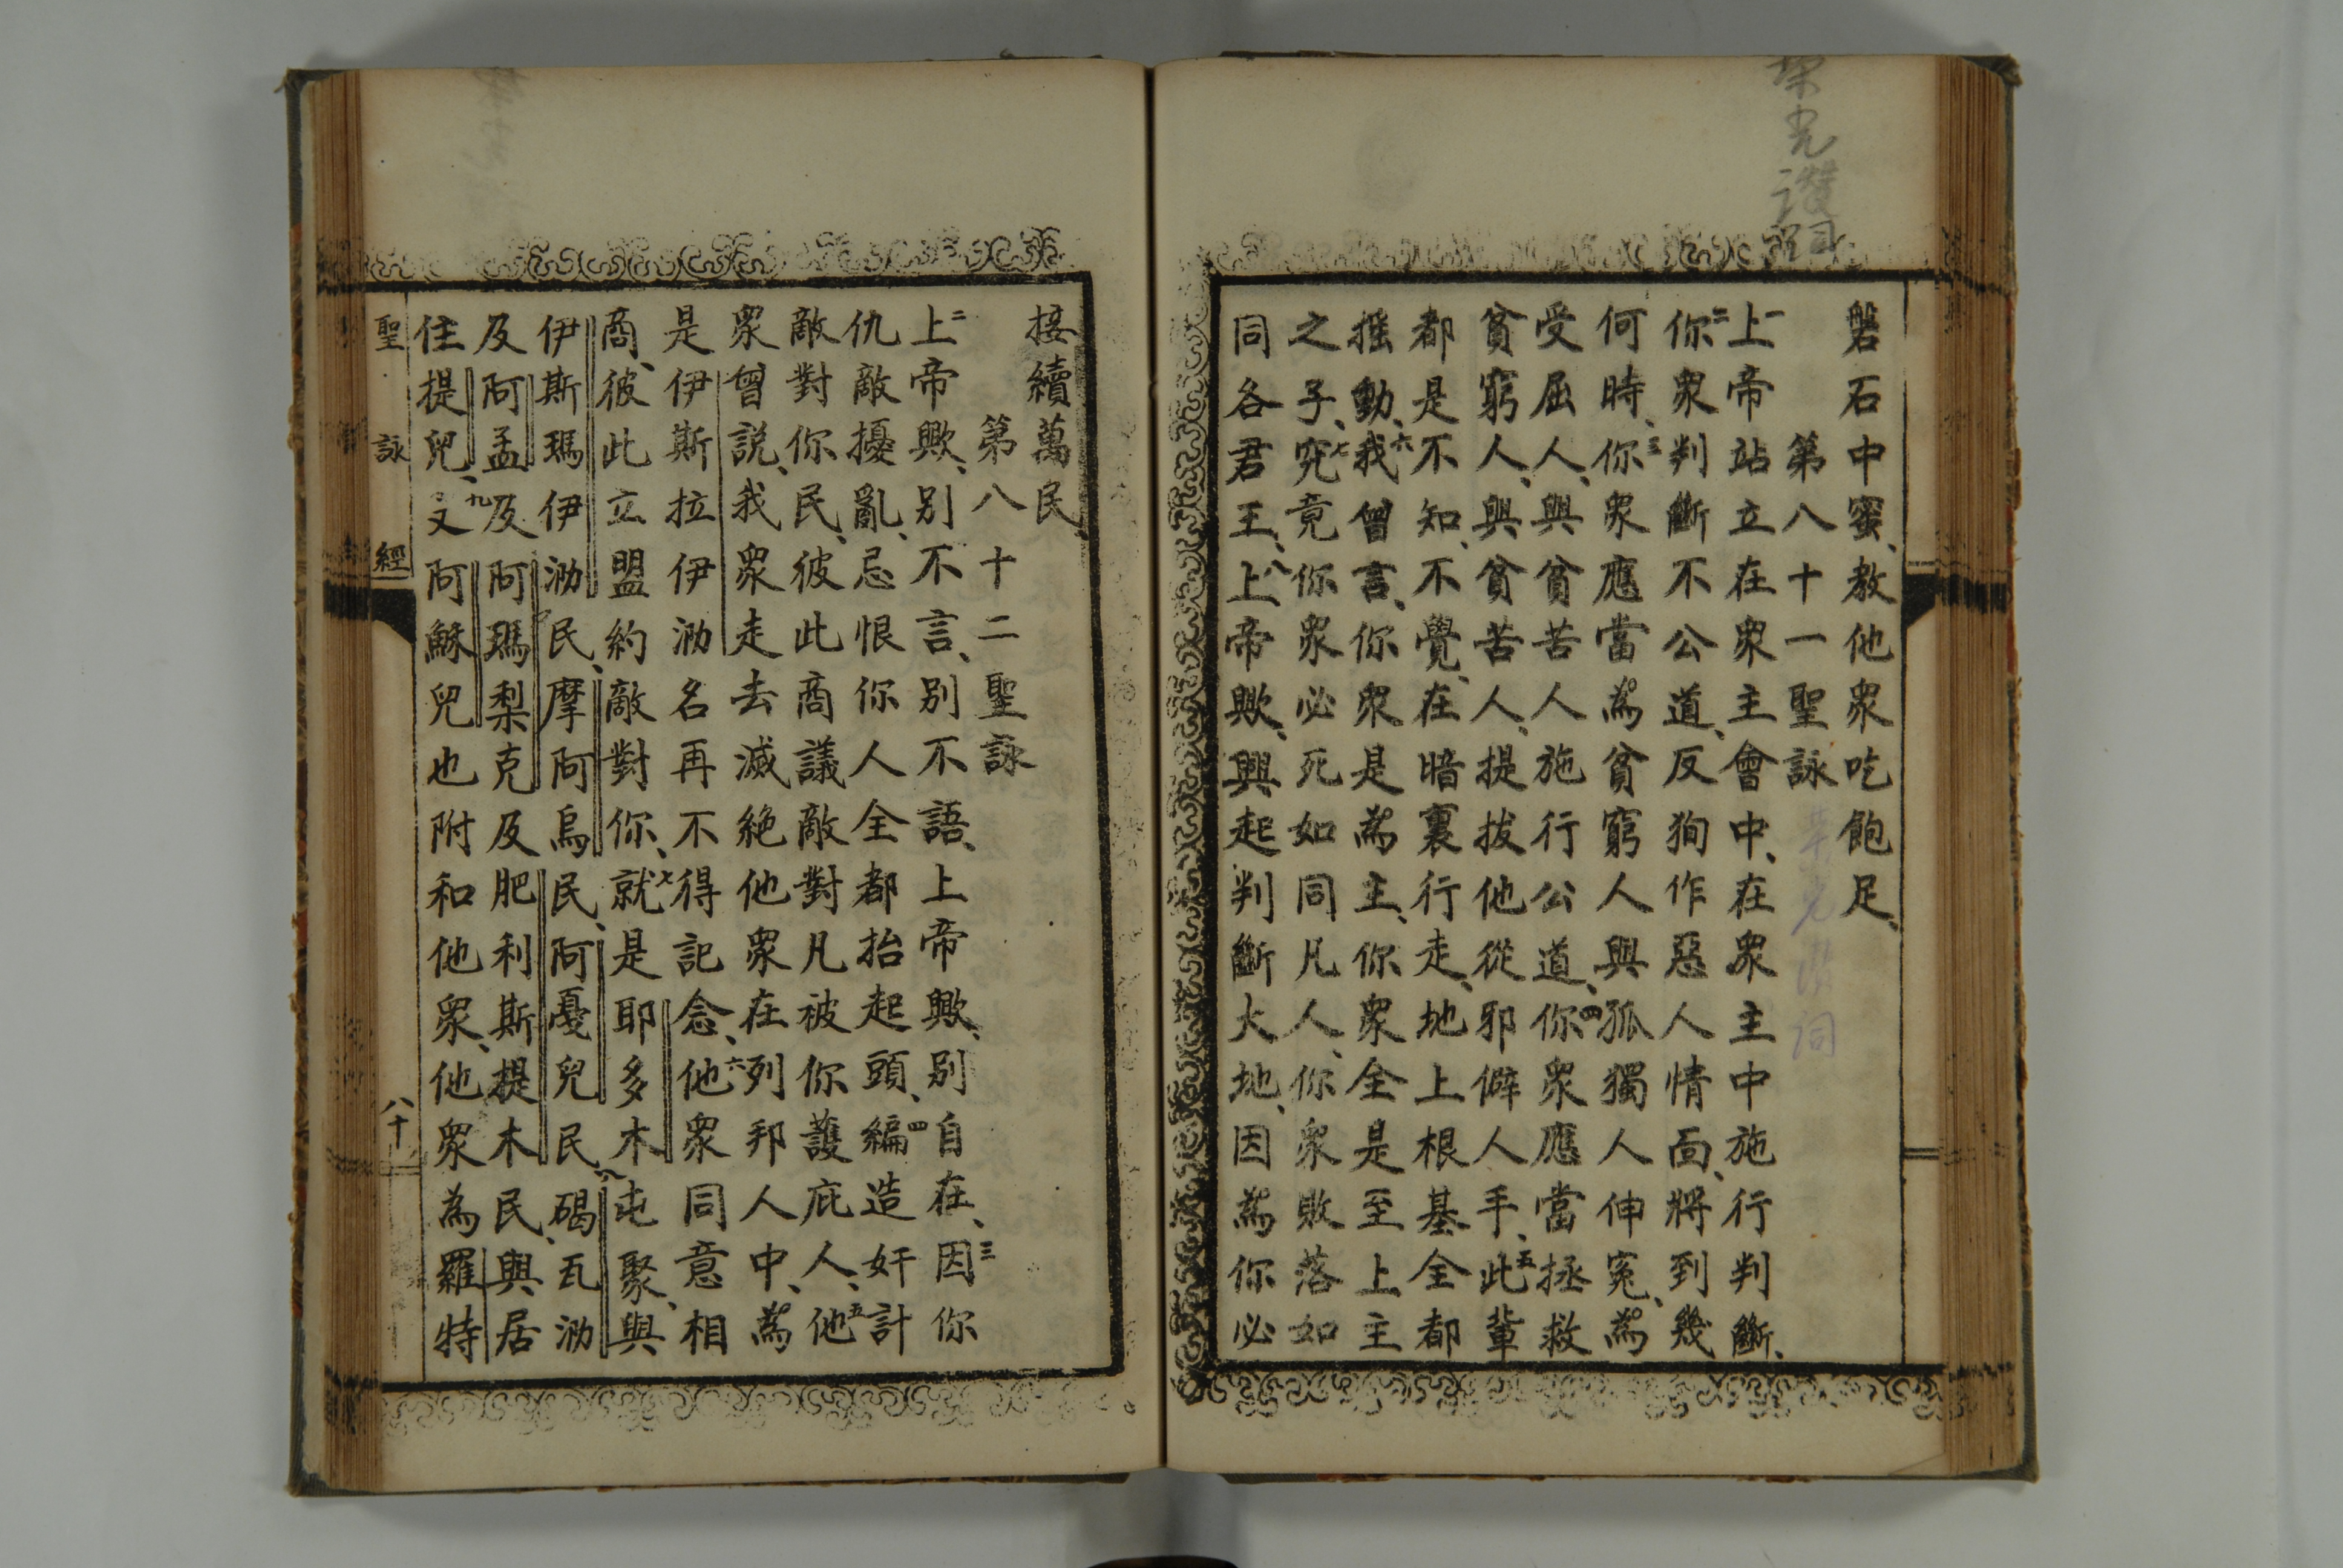 榮光讚詞
磐石中蜜、教他眾吃飽足、
第八十一聖詠
一上帝站立在衆主會中、在衆主中施行判斷、
二你衆判斷不公道、反狥作惡人情面、將到幾
何時、三你衆應當為貧窮人與孤獨人伸冤、為
受屈人、與貧苦人施行公道、四你衆應當拯救
貧窮人、與貧苦人、提拔他從邪僻人手、五此輩
都是不知、不覺、在暗裏行走、地上根基全都
摇動、六我曾言、你衆是為主、你衆全是至上主
之子、七究竟你衆必死如同凡人、你衆敗落如
同各君王、八上帝歟、興起判斷大地、因為你必
接續萬民、
第八十二聖詠
二上帝歟、别不言、别不語、上帝歟、别自在、三因你
仇敵擾亂、忌恨你人全都抬起頭、四編造奸計
敵對你民、彼此商議敵對凡被你護庇人、五他
衆曾説、我衆走去滅絶他衆在列邦人中、為
是伊斯拉伊泐名再不得記念、六他衆同意相
商、彼此立盟約敵對你、七就是耶多木屯聚、與
伊斯瑪伊泐民、摩阿烏民、阿憂兒民、八碣瓦泐
及阿孟及阿瑪梨克及肥利斯提木民、與居
住提兒、九又阿穌兒也附和他衆、他衆為羅特
聖詠經
八十